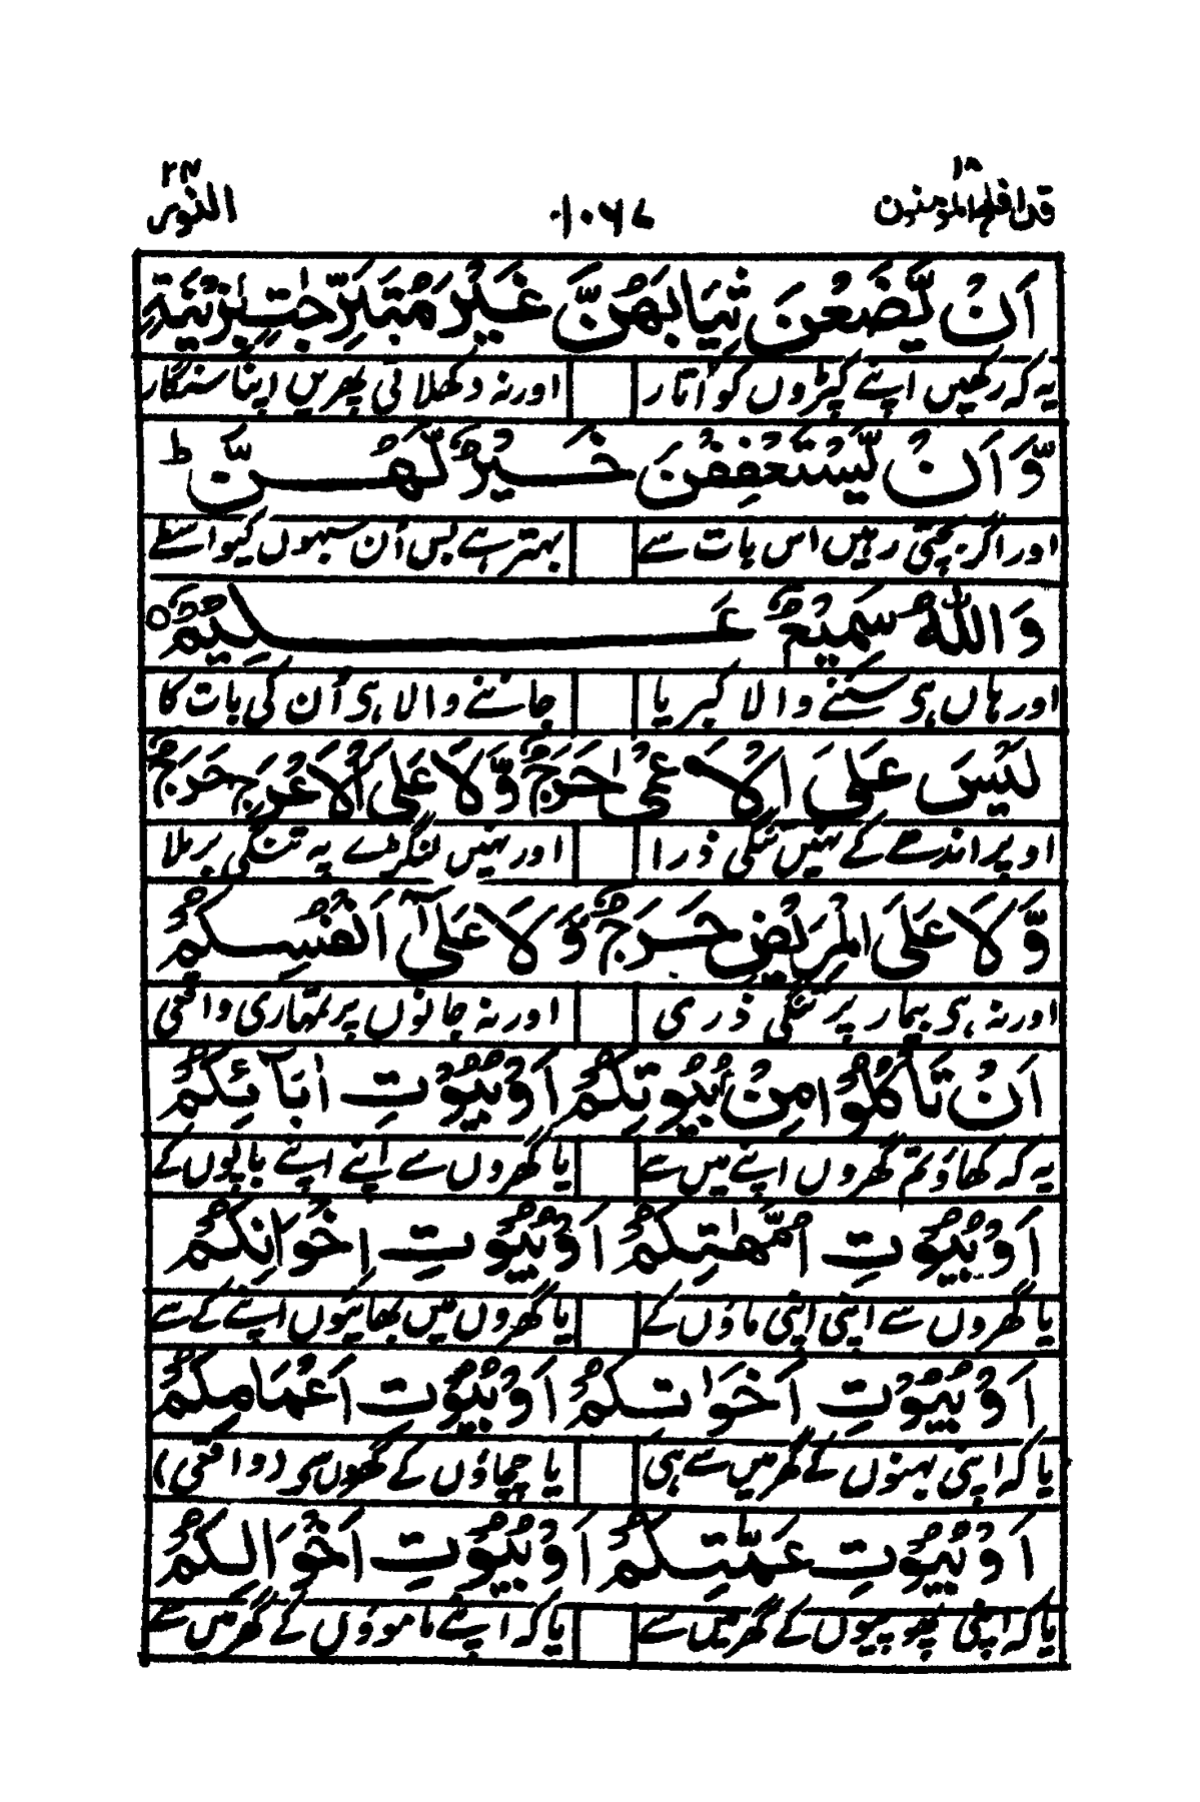 قد افلح المؤمنون ١٨ ١٠٦٧ النور ٢٤
اَنْ يَّضَعْنَ ثِيَابَهُنَّ غَيْرَ مُتَبَرِّجٰتٍۭ بِزِيْنَةٍ
یہ کہ رکھیں اپنے کپڑوں کو اُتار اور نہ دکھلاتی پھریں اپنا سنگار
وَّاَنْ يَّسْتَعْفِفْنَ خَيْرٌ لَّهُنَّ ط
اور اگر بچتی رہیں اس بات سے بہتر ہے بس اُن سبہوں کیواسطے
وَاللّٰهُ سَمِيْعٌ عَلِيْمٌ ○
اور ہاں ہی سننے والا کبریا جاننے والا ہی اُن کی بات کا
لَيْسَ عَلَى الْاَعْمٰى حَرَجٌ وَّلَا عَلَى الْاَعْرَجِ حَرَجٌ
اوپر اندھے کے نہیں تنگی ذرا اور نہیں لنگڑے پہ تنگی برملا
وَّلَا عَلَى الْمَرِيْضِ حَرَجٌ وَّلَا عَلٰٓى اَنْفُسِكُمْ
اور نہ ہی بیمار پر تنگی ذری اور نہ جانوں پر تمہاری واقعی
اَنْ تَاْكُلُوْا مِنْۢ بُيُوْتِكُمْ اَوْ بُيُوْتِ اٰبَآئِكُمْ
یہ کہ کھاؤ تم گھروں اپنے میں سے یا گھروں سے اپنے اپنے باپوں کے
اَوْ بُيُوْتِ اُمَّهٰتِكُمْ اَوْ بُيُوْتِ اِخْوَانِكُمْ
یا گھروں سے اپنی اپنی ماؤں کے یا گھروں میں بھائیوں اپنے کے سے
اَوْ بُيُوْتِ اَخَوٰتِكُمْ اَوْ بُيُوْتِ اَعْمَامِكُمْ
یا کہ اپنی بہنوں کے گھر میں سے ہی یا چچاؤں کے گھروں سی (واقعی)
اَوْ بُيُوْتِ عَمّٰتِكُمْ اَوْ بُيُوْتِ اَخْوَالِكُمْ
یا کہ اپنی پھوپیوں کے گھر میں سے یا کہ اپنے ماموؤں کے گھر میں سے